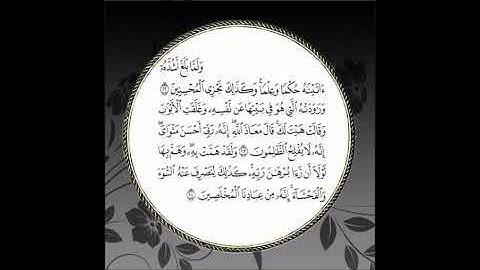 وَلَمَّا بَلَغَ أَشُدَّهُۥٓ
ءَاتَيْنَٰهُ حُكْمًا وَعِلْمًا ۚ وَكَذَٰلِكَ نَجْزِى ٱلْمُحْسِنِينَ ٢٢
وَرَٰوَدَتْهُ ٱلَّتِى هُوَ فِى بَيْتِهَا عَن نَّفْسِهِۦ وَغَلَّقَتِ ٱلْأَبْوَٰبَ
وَقَالَتْ هَيْتَ لَكَ ۚ قَالَ مَعَاذَ ٱللَّهِ ۖ إِنَّهُۥ رَبِّىٓ أَحْسَنَ مَثْوَاىَ ۖ
إِنَّهُۥ لَا يُفْلِحُ ٱلظَّٰلِمُونَ ٢٣ وَلَقَدْ هَمَّتْ بِهِۦ ۖ وَهَمَّ بِهَا
لَوْلَآ أَن رَّءَا بُرْهَٰنَ رَبِّهِۦ ۚ كَذَٰلِكَ لِنَصْرِفَ عَنْهُ ٱلسُّوٓءَ
وَٱلْفَحْشَآءَ ۚ إِنَّهُۥ مِنْ عِبَادِنَا ٱلْمُخْلَصِينَ ٢٤